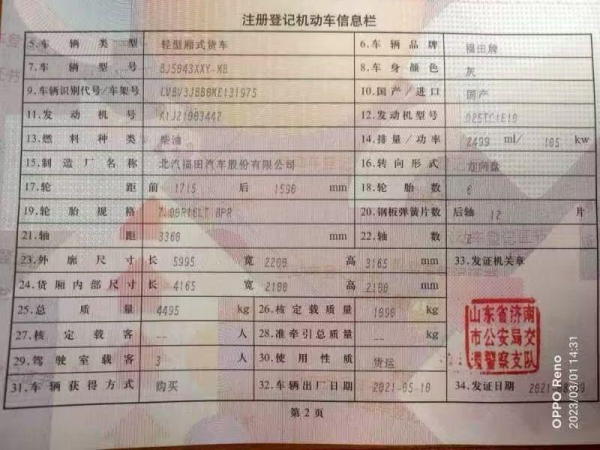 注册登记机动车信息栏
5.车辆类型 轻型厢式货车 6.车辆品牌 福田牌
7.车辆型号 BJ5043XXY- 8.车身颜色 灰
9.车辆识别代号/车架号 10.国产/进口 国产
11.发动机号 12.发动机型号
13.燃料种类 柴油 14.排量/功率 2499 ml/ kw
15.制造厂名称 北汽福田汽车股份有限公司 16.转向形式 方向盘
17.轮距 前 1715 后 1590 mm 18.轮胎数 6
19.轮胎规格 7.00R16LT 8PR 20.钢板弹簧片数 后轴 12 片
21.轴距 3360 mm 22.轴数 2
23.外廓尺寸 长 5995 宽 2200 高 3165 mm 33.发证机关章
24.货厢内部尺寸 长 4165 宽 2100 高 2100 mm
25.总质量 4495 kg 26.核定载质量 kg
27.核定载客 -- 人 28.准牵引总质量 -- kg
29.驾驶室载客 3 人 30.使用性质 货运
31.车辆获得方式 购买 32.车辆出厂日期 2021-05-10 34.发证日期
山东省济南
市公安局交
通警察支队
第2页
OPPO Reno
2023/03/01 14:31